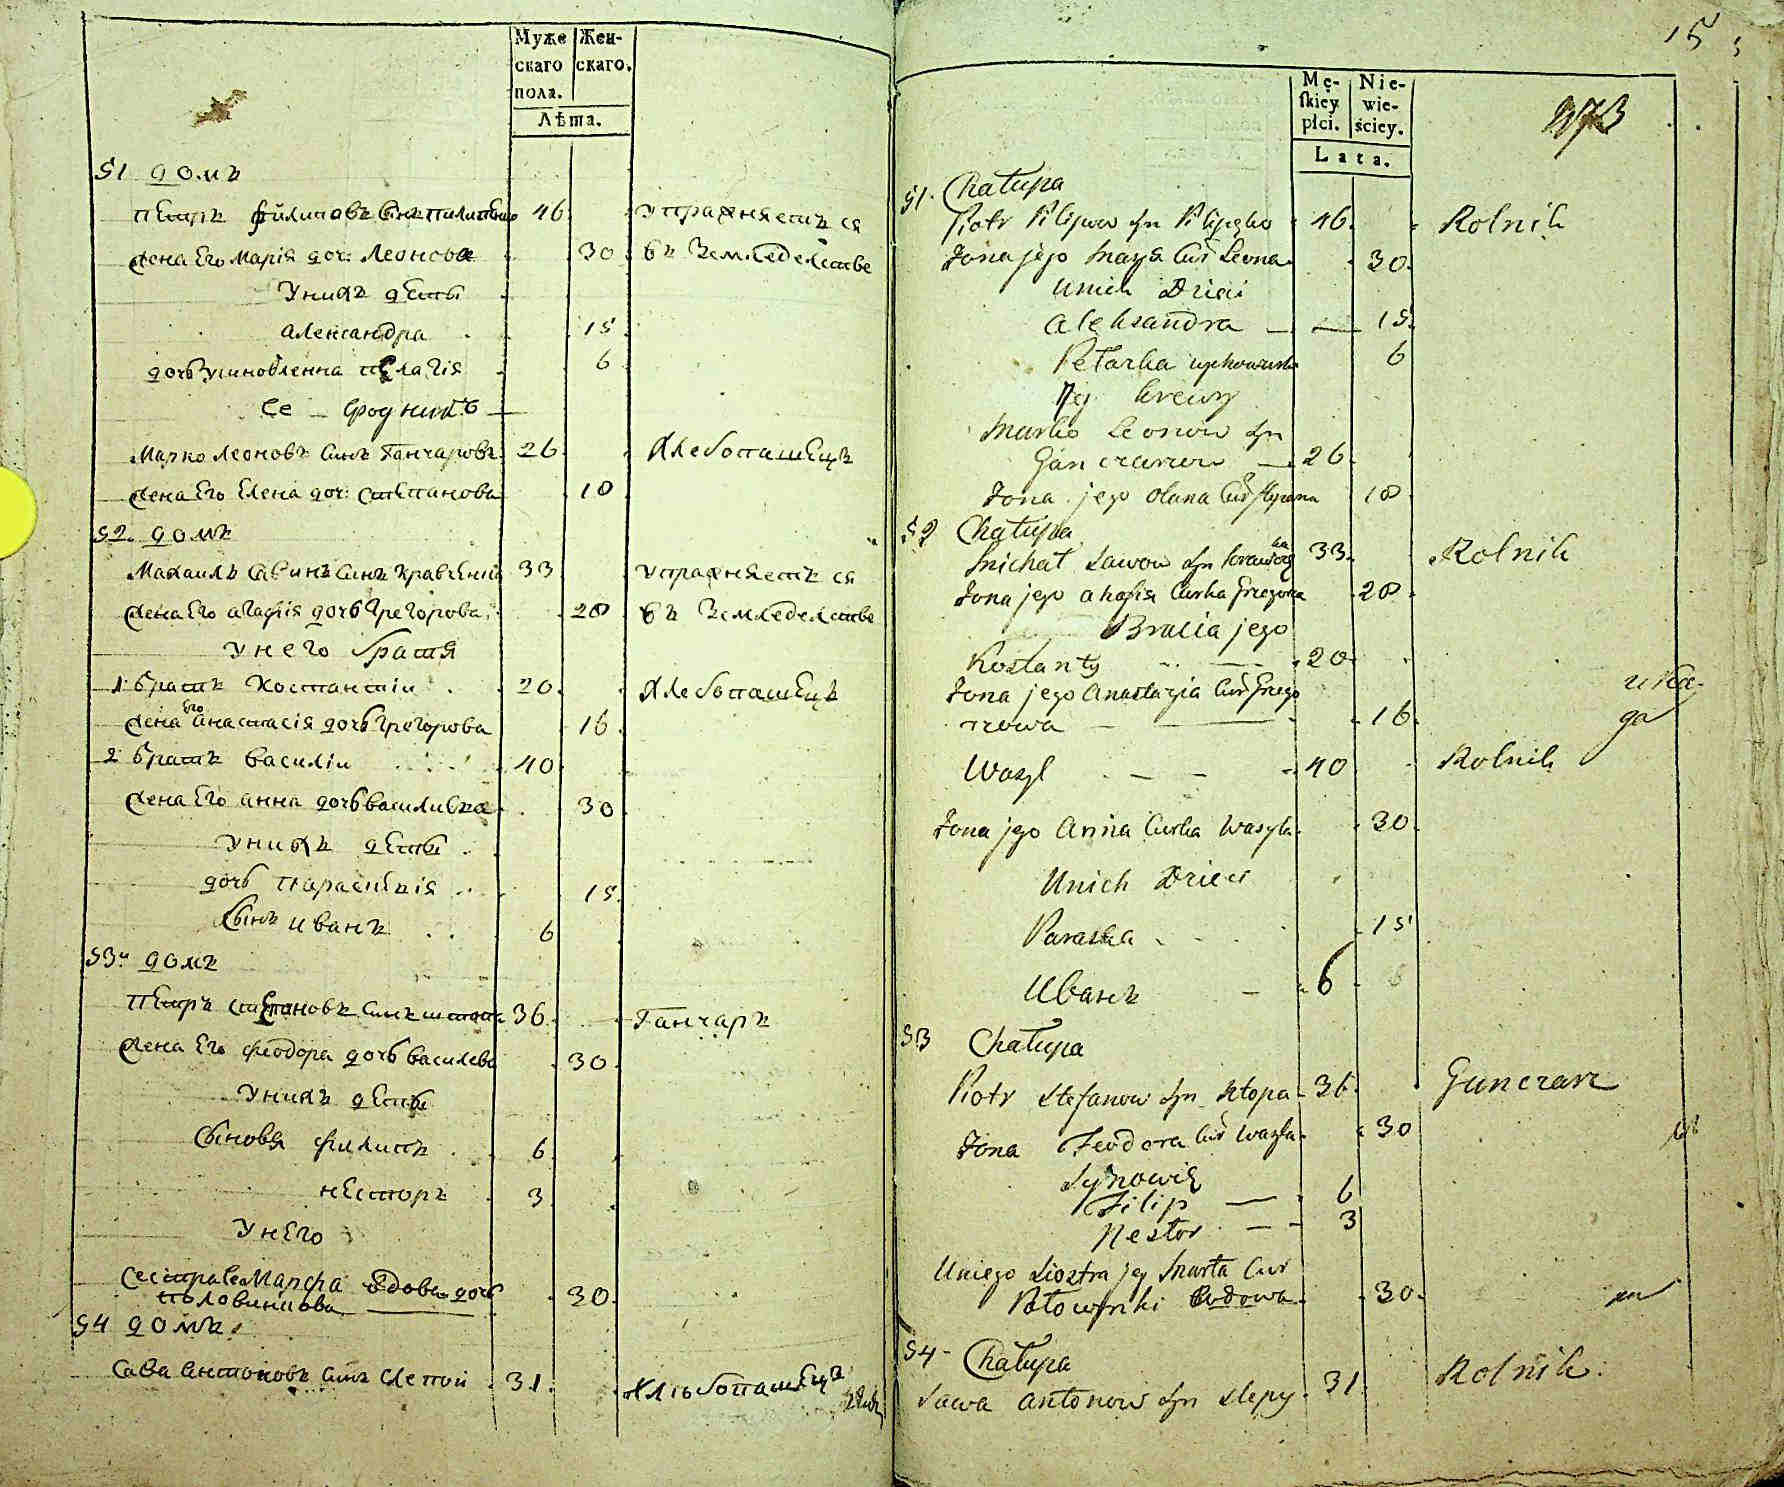 Муже
скаго
пола.
Жен-
скаго.
Лѣта.
51 домъ
Петръ филиповъ синъ пилипенко 46 упражняетъ ся
жена Его Марія доч: Леонова 30 въ Земледелстве
Унихъ дети
александра 15
дочь усиновленна пелагія 6
Се сродникъ
Марко Леоновъ синъ Ганчаровъ 26 Хлебопашецъ
жена Его Елена доч: степанова 18
52 домъ
Михаилъ Савинъ Синъ кравченко 33 упражняетъ ся
жена Его агафія дочь григорова 28 въ Земледелстве
унего братя
1 братъ Костантіи 20 Хлебопашецъ
жена Его анастасія дочь григорова 16
2 братъ василіи 40
жена Его анна дочь василивна 30
унихъ дети
дочь параскевія 15
Сынъ иванъ 6
53 домъ
Петръ степановъ синъ 36 Ганчаръ
жена Его феодора дочь василева 30
унихъ дети
Сыновя филипъ 6
несторъ 3
УнЕго
сестра Се Марфа вдова дочь
половинкова 30
54 домъ
Сава антоновъ синъ Слепой 31 Хлѣбопашецъ
15
373
Mę-
skiey
płci.
Nie-
wie-
ściey.
Lata.
51. Chałupa
Piotr Filipow syn Filipenko 46 Rolnik
Żona jego Marya Cur Leona 30
Unich Dzieci
Aleksandra 15
Pełazka 6
Jey krewny
Marko Leonow syn
Ganczarow 26
Żona jego Olana Cur Stepana 18
52 Chałupa
Michał Sawow syn 33 Rolnik
Żona jego Ahafia Curka Grzegorza 28
Bracia jego
Kostanty 20
Żona jego Anastazia Cur Grzego
rzowa 16
Wasyl 40 Rolnik
Żona jego Anna Curka Wasyla 30
Unich Dzieci
Paraska 15
Иванъ 6
53 Chałupa
Piotr Stefanow syn Stopa 36 Gunczarz
Żona Feodora Cur Wasyla 30
Synowie
Filip 6
Nestor 3
Uniego Siostra jey Marta Cur
Połowinki wdowa 30
54 Chałupa
Sawa Antonow syn Slepy 31 Rolnik